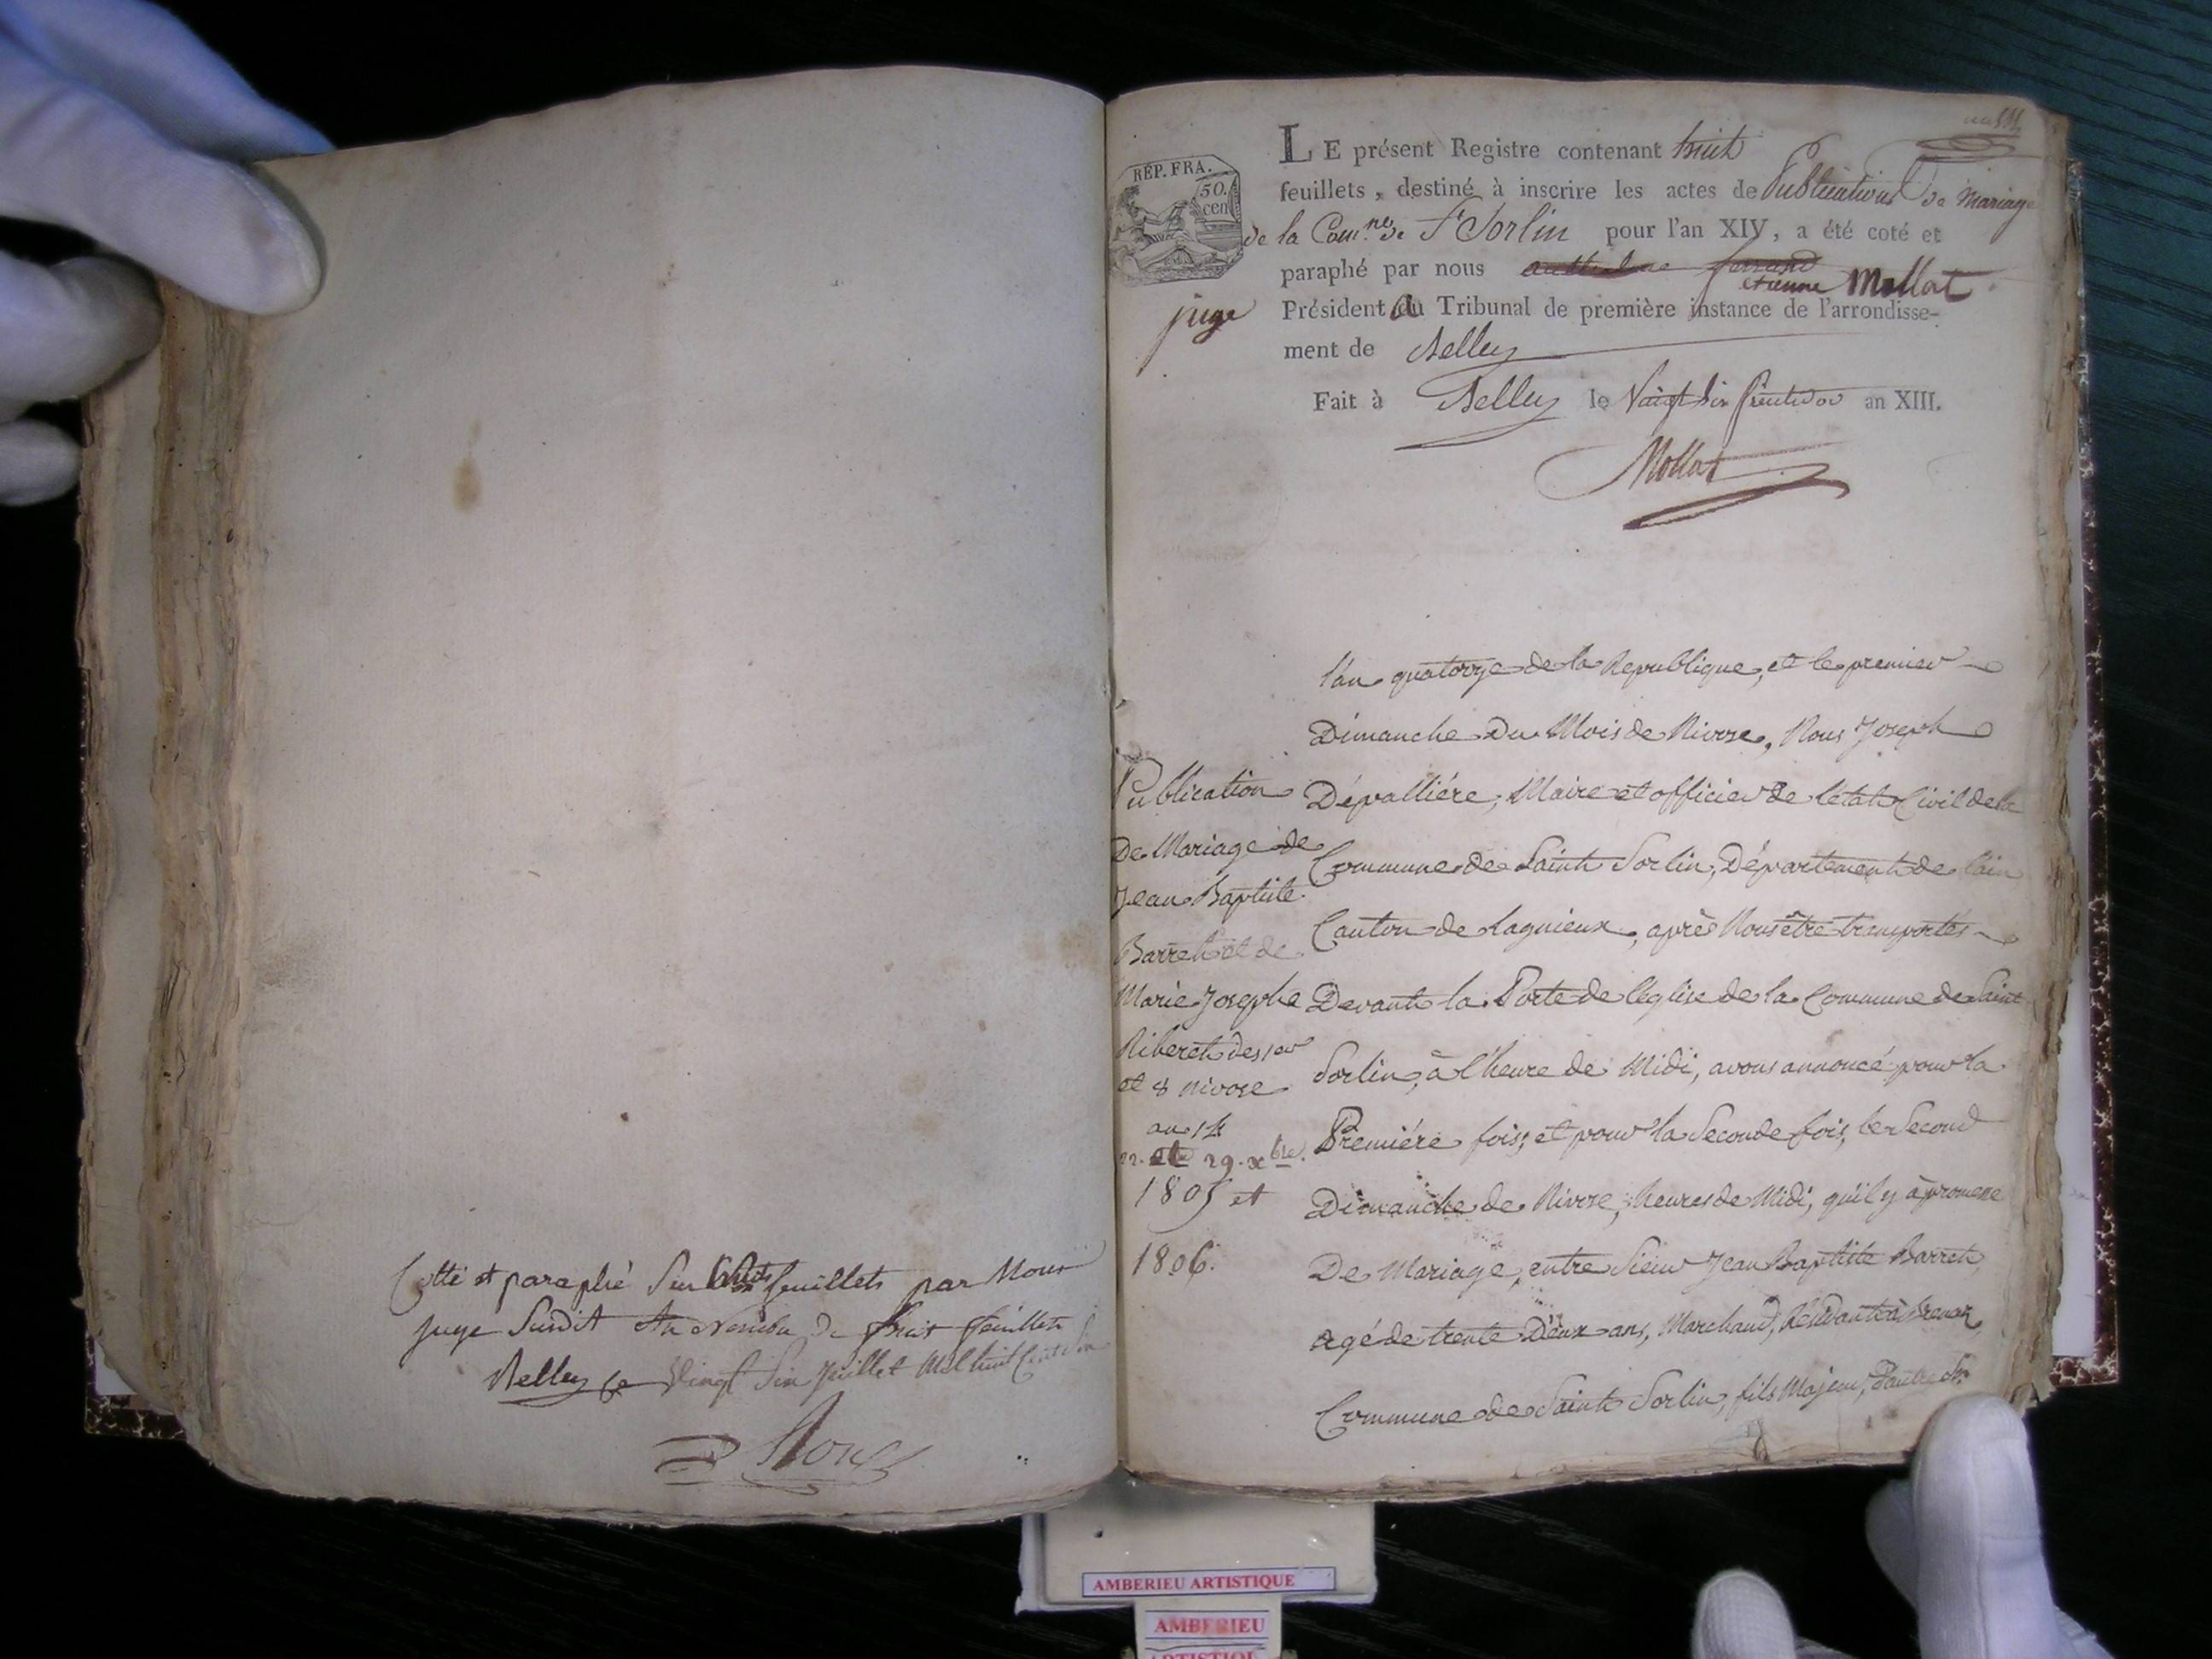 Cotté et paraphé Sur huit feuillets par Nous
juge Susdit Au nombre De huit feuillets
Belley ce Vingt Six Juillet Mil huit Cent Six
RÉP. FRA.
50.
cen
LE présent Registre contenant huit
feuillets, destiné à inscrire les actes de Publications De Mariage
de la Com.ne de St Sorlin pour l'an XIV, a été coté et
paraphé par nous anthelme ferrand etienne Mollat
juge Président du Tribunal de première instance de l'arrondisse-
ment de Belley
Fait à Belley le Vingt Six fructidor an XIII.
Mollat
Publication
De Mariage de
Jean Baptiste
Barret et de
Marie Josephe
Riberet des 1er
et 8 nivose
an 14
22. et 29. xbre.
1805 et
1806.
l'an quatorze de la Republique, et le premier
Dimanche Du Mois de Nivose, Nous Joseph
Dépalliére, Maire et officier de l'état Civil de la
Commune de Saint Sorlin, Département de l'ain
Canton de Lagnieux, après Nous être transportés
Devant la Porte de l'église de la Commune de Saint
Sorlin, à l'heure de Midi, avons annoncé pour la
Premiére fois, et pour la Seconde fois, le Second
Dimanche de Nivose, heures de Midi, qu'il y à promesse
De Mariage, entre Sieur Jean Baptiste Barret,
agé de trente Deux ans, Marchand, Résidant à
Commune de Saint Sorlin, fils Majeur,
AMBERIEU ARTISTIQUE
AMBERIEU
ARTISTIQUE